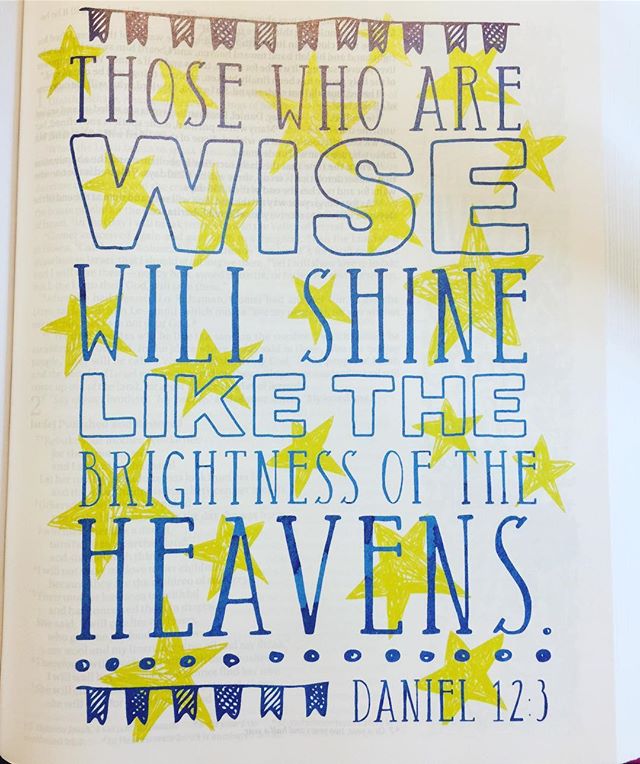 THOSE WHO ARE
WISE
WILL SHINE
LIKE THE
BRIGHTNESS OF THE
HEAVENS.
DANIEL 12:3